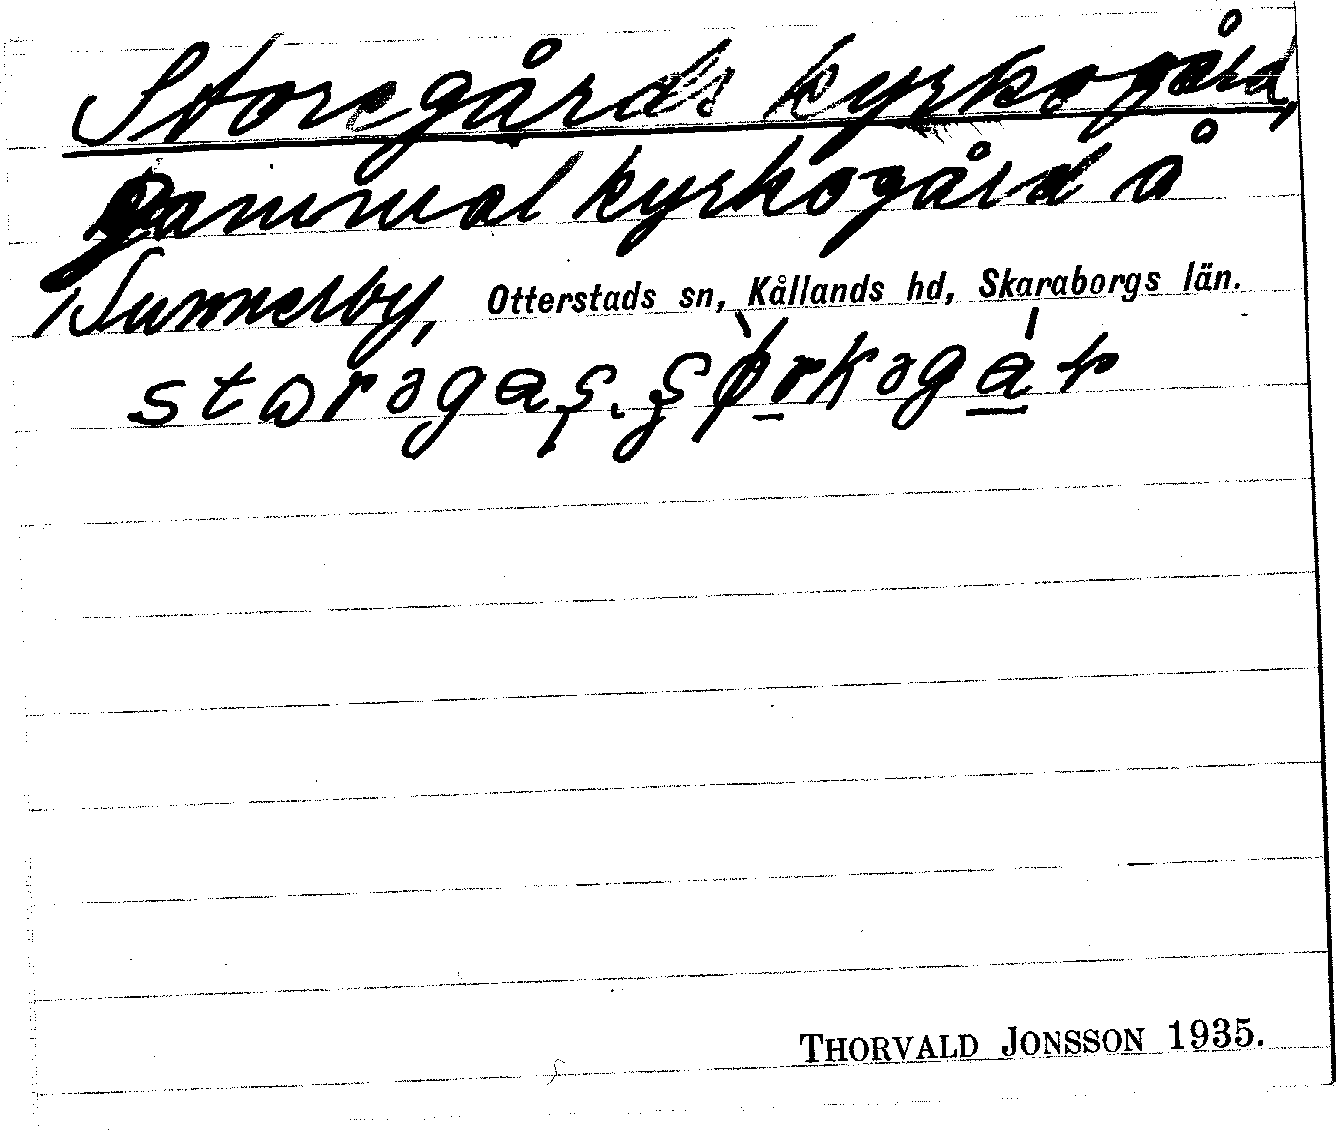 Storegårds kyrkogård,
Gammal kyrkogård å
Sunnerby, Otterstads sn, Kållands hd, Skaraborgs län.
THORVALD JONSSON 1935.